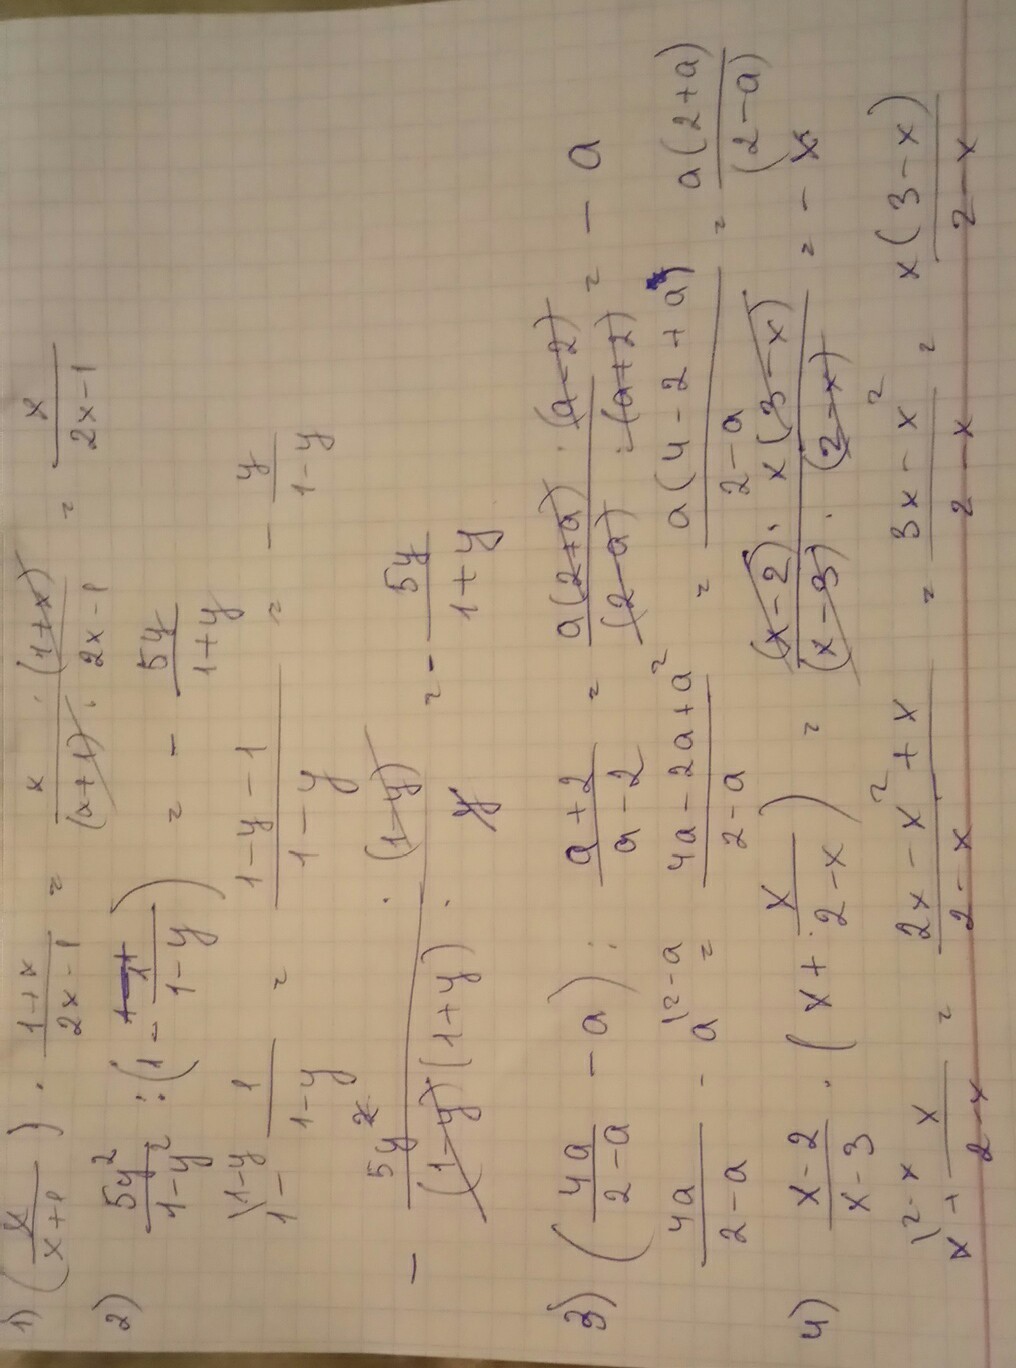 1) (x/(x+1)) · (1+x)/(2x-1) = x · (1+x)/((a+1) · 2x-1) = x/(2x-1)
2) 5y²/(1-y²) : (1 - 1/(1-y)) = - 5y/(1+y)
1\1-y - 1/(1-y) = (1-y-1)/(1-y) = - y/(1-y)
- 5y · (1-y)/((1-y)(1+y) · y) = - 5y/(1+y)
3) (4a/(2-a) - a) : (a+2)/(a-2) = a(2+a) · (a-2)/((2-a) · (a+2)) = - a
4a/(2-a) - a\2-a = (4a-2a+a²)/(2-a) = a(4-2+a)/(2-a) = a(2+a)/(2-a)
4) (x-2)/(x-3) · (x + x/(2-x)) = (x-2) · x(3-x)/((x-3) · (2-x)) = - x
x\2-x + x/(2-x) = (2x-x²+x)/(2-x) = (3x-x²)/(2-x) = x(3-x)/(2-x)